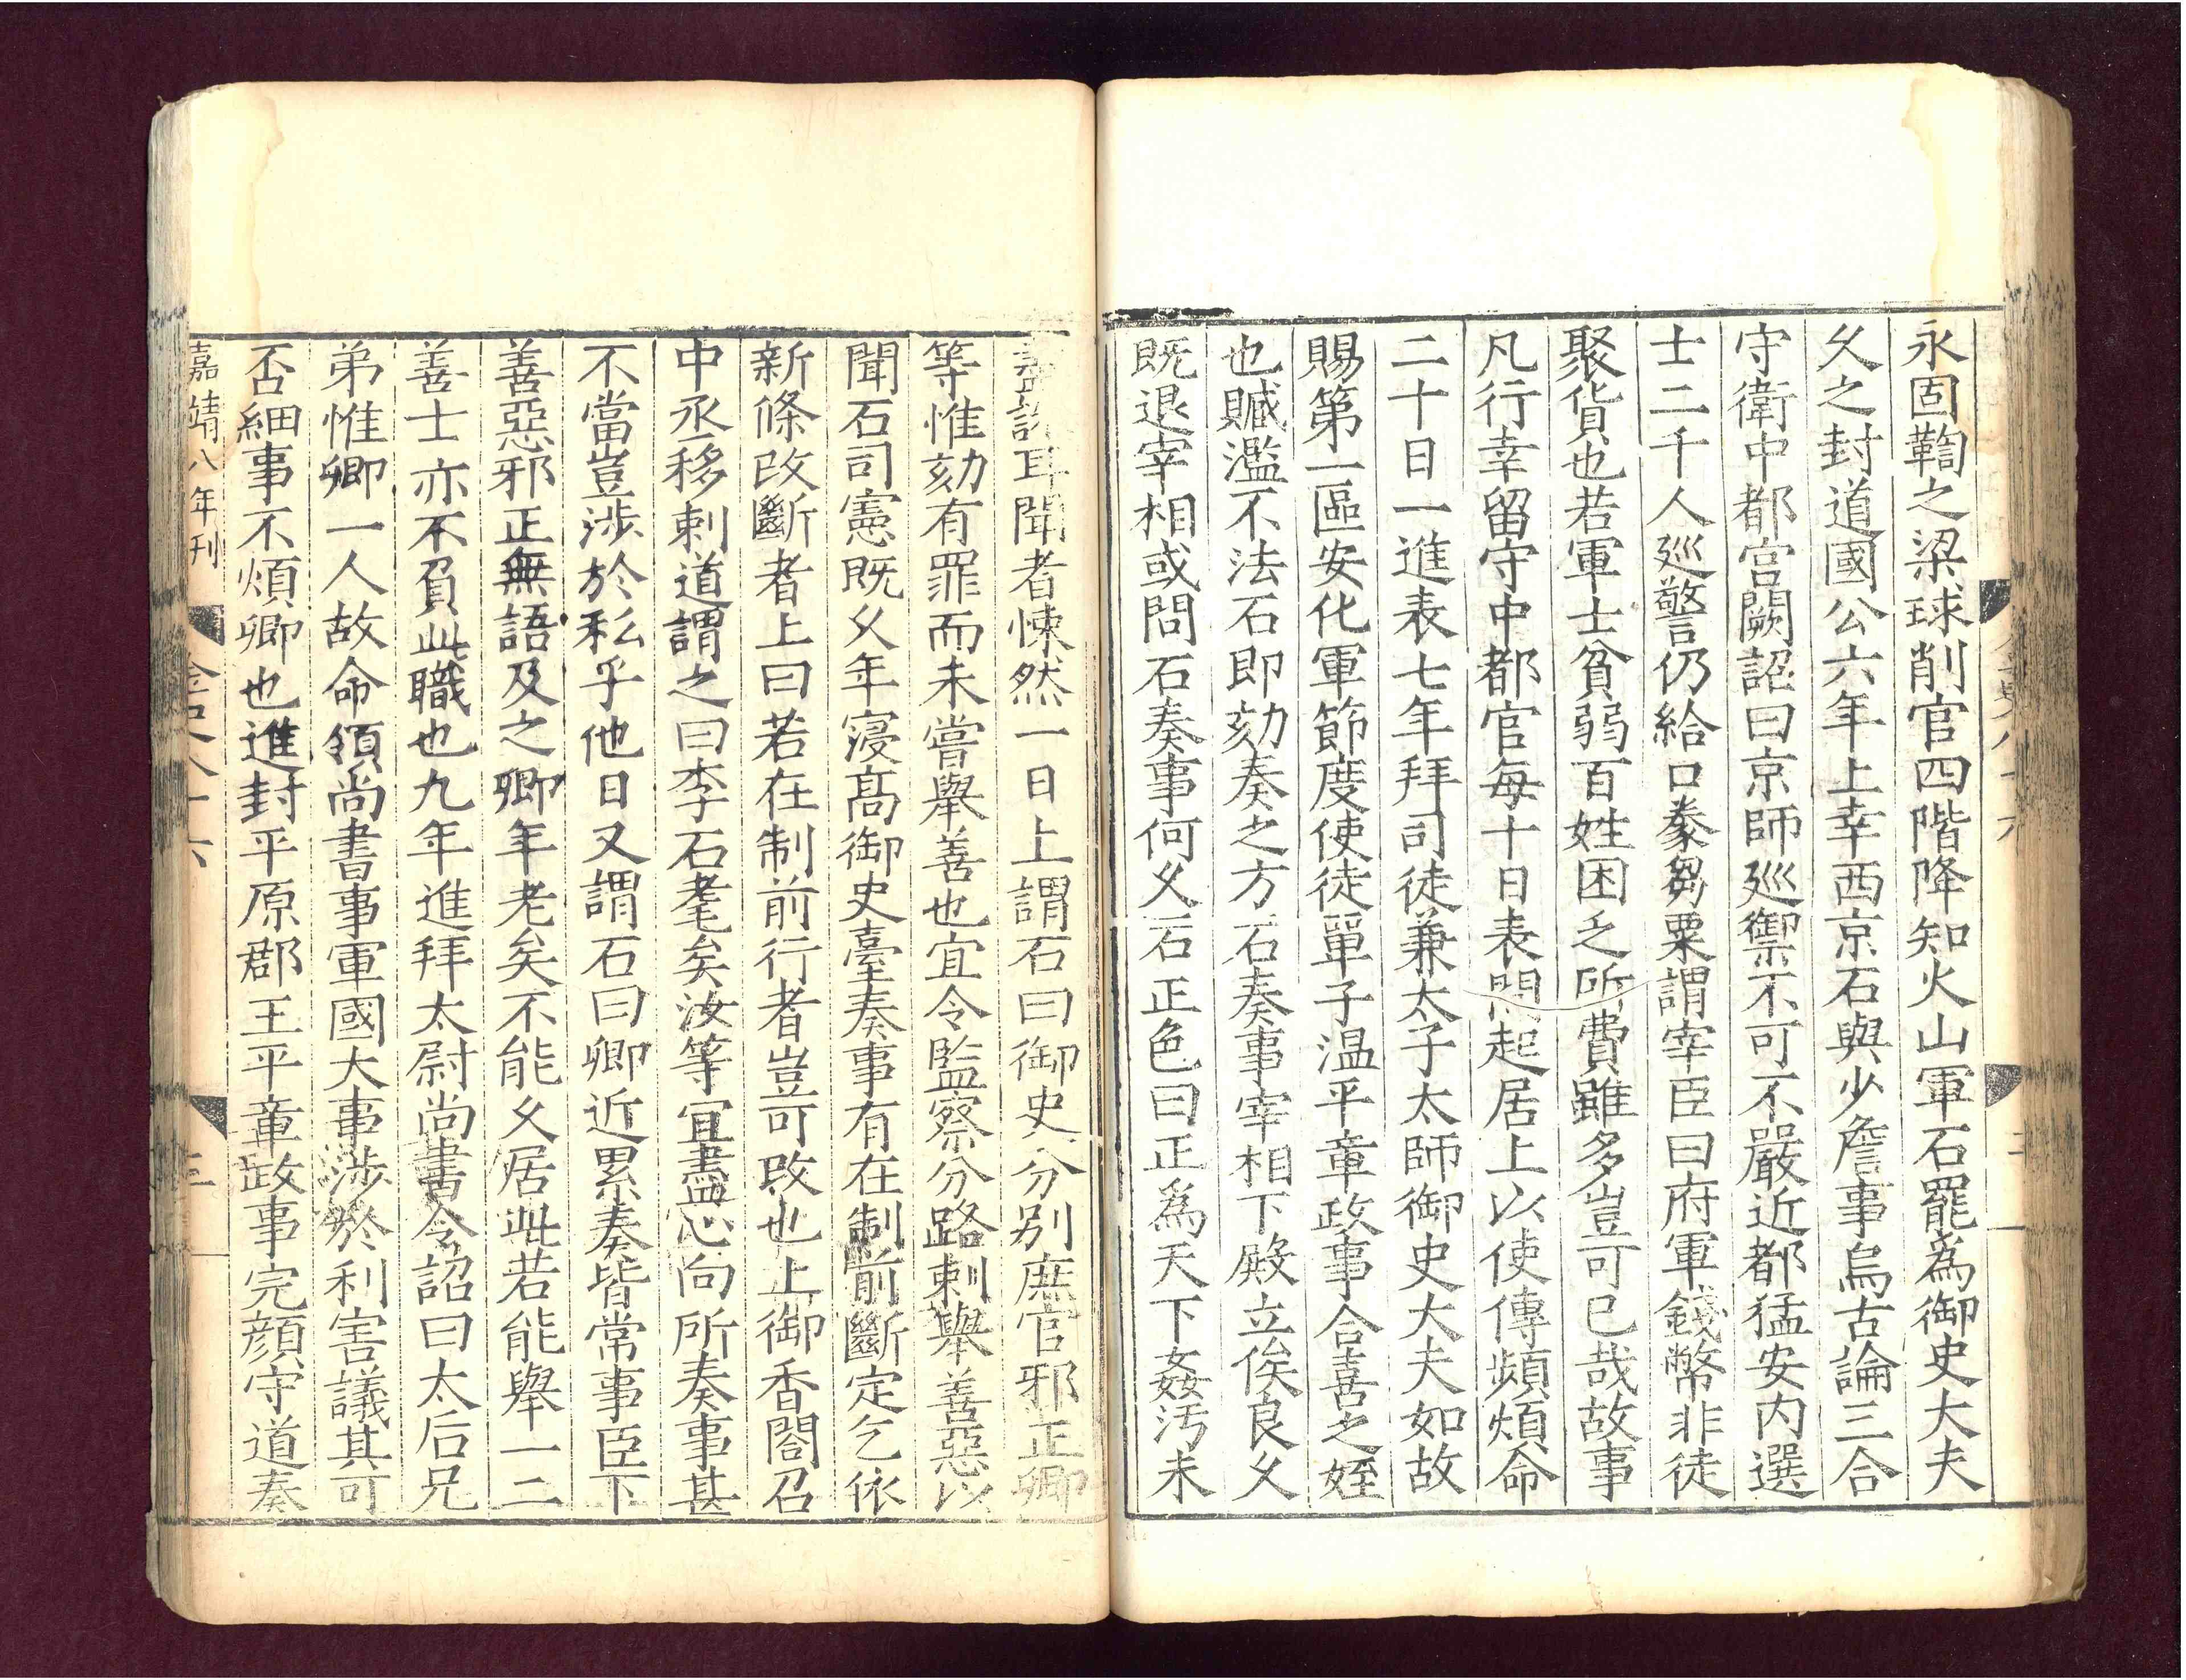 永固鞫之梁球削官四階降知火山軍石罷爲御史大夫
久之封道國公六年上幸西京石與少詹事烏古論三合
守衛中都宫闕詔曰京師巡禦不可不嚴近都猛安内選
士二千人巡警仍給口券芻粟謂宰臣曰府軍錢幣非徒
聚貨也若軍士貧弱百姓困乏所費雖多豈可已哉故事
凡行幸留守中都官每十日表問起居上以使傳頻煩命
二十日一進表七年拜司徒兼太子太師御史大夫如故
賜第一區安化軍節度使徒單子温平章政事合喜之姪
也贓濫不法石即劾奏之方石奏事宰相下殿立俟良久
既退宰相或問石奏事何久石正色曰正爲天下姦汚未
盡誅耳聞者悚然一日上謂石曰御史分别庶官邪正卿
等惟劾有罪而未嘗舉善也宜令監察分路刺舉善惡以
聞石司憲既久年寖高御史臺奏事有在制前斷定乞依
新條改斷者上曰若在制前行者豈可改也上御香閤召
中丞移剌道謂之曰李石耄矣汝等宜盡心向所奏事甚
不當豈涉於私乎他日又謂石曰卿近累奏皆常事臣下
善惡邪正無語及之卿年老矣不能久居此若能舉一二
善士亦不負此職也九年進拜太尉尚書令詔曰太后兄
弟惟卿一人故命領尚書事軍國大事涉於利害議其可
否細事不煩卿也進封平原郡王平章政事完顔守道奏
嘉靖八年刊
金史八十六
三